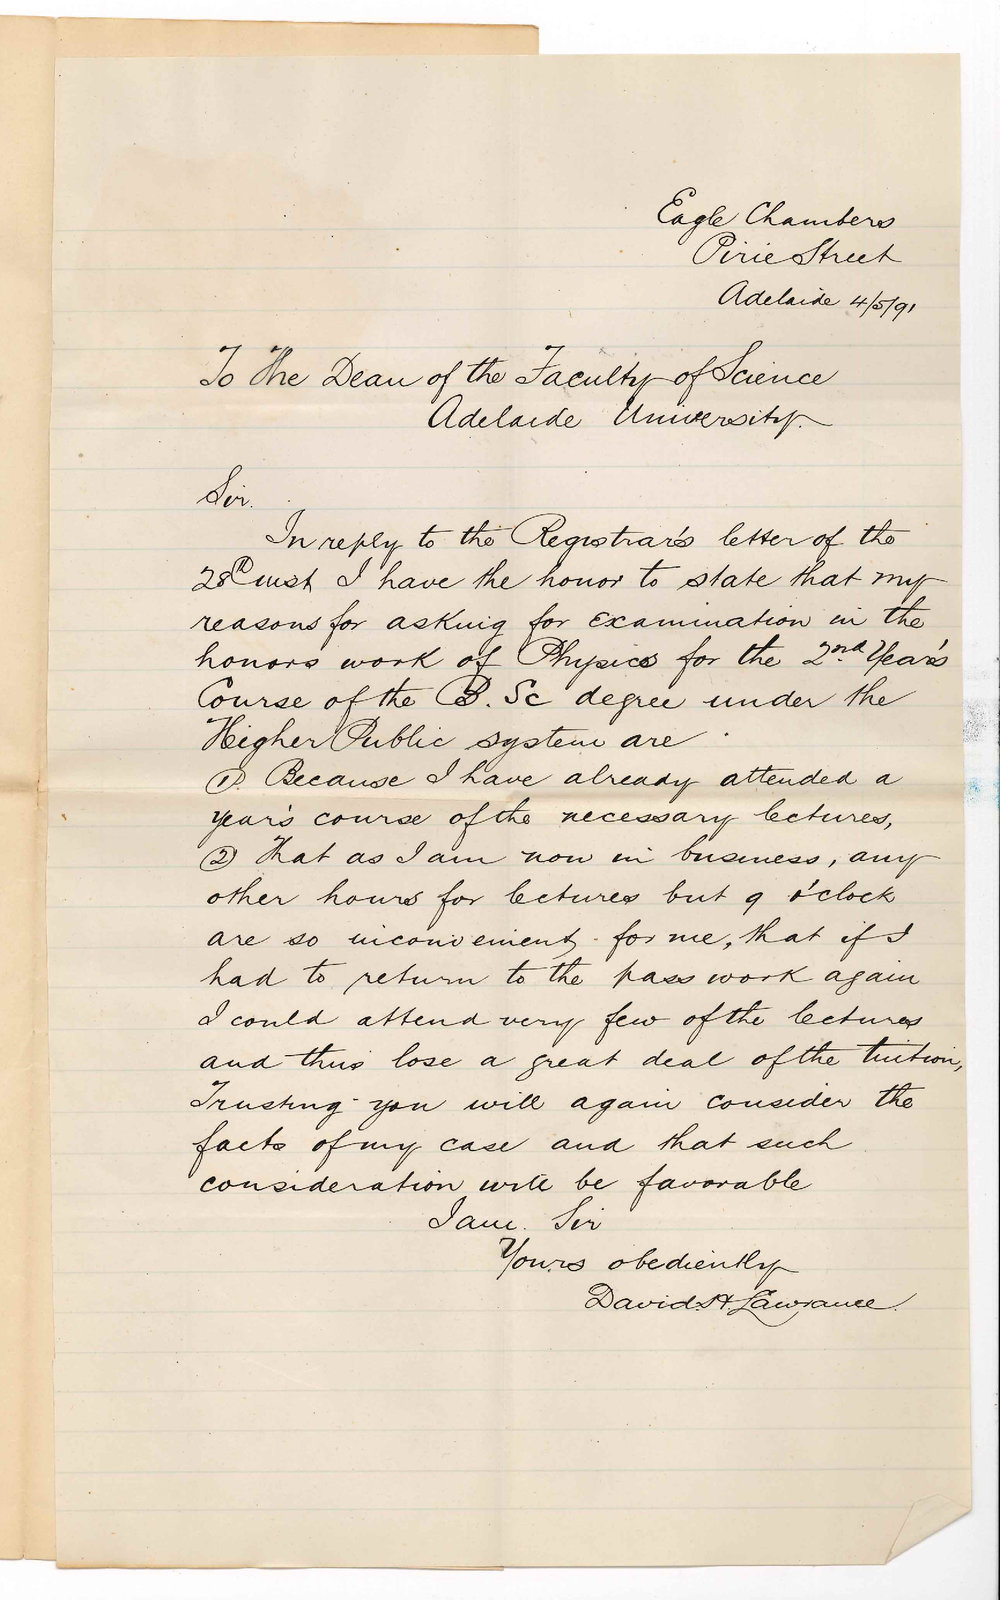 Eagle Chambers
Pirie Street
Adelaide 4/5/91
To The Dean of the Faculty of Science
Adelaide University.
Sir.
In reply to the Registrar's letter of the
28th inst I have the honor to state that my
reasons for asking for examination in the
honors work of Physics for the 2nd Year's
Course of the B. Sc degree under the
Higher Public system are
1). Because I have already attended a
year's course of the necessary lectures,
2) That as I am now in business, any
other hours for lectures but 9 o'clock
are so inconvenient for me, that if I
had to return to the pass work again
I could attend very few of the lectures
and thus lose a great deal of the tuition,
Trusting you will again consider the
facts of my case and that such
consideration will be favorable
I am. Sir
Yours obediently
David H Lawrance.